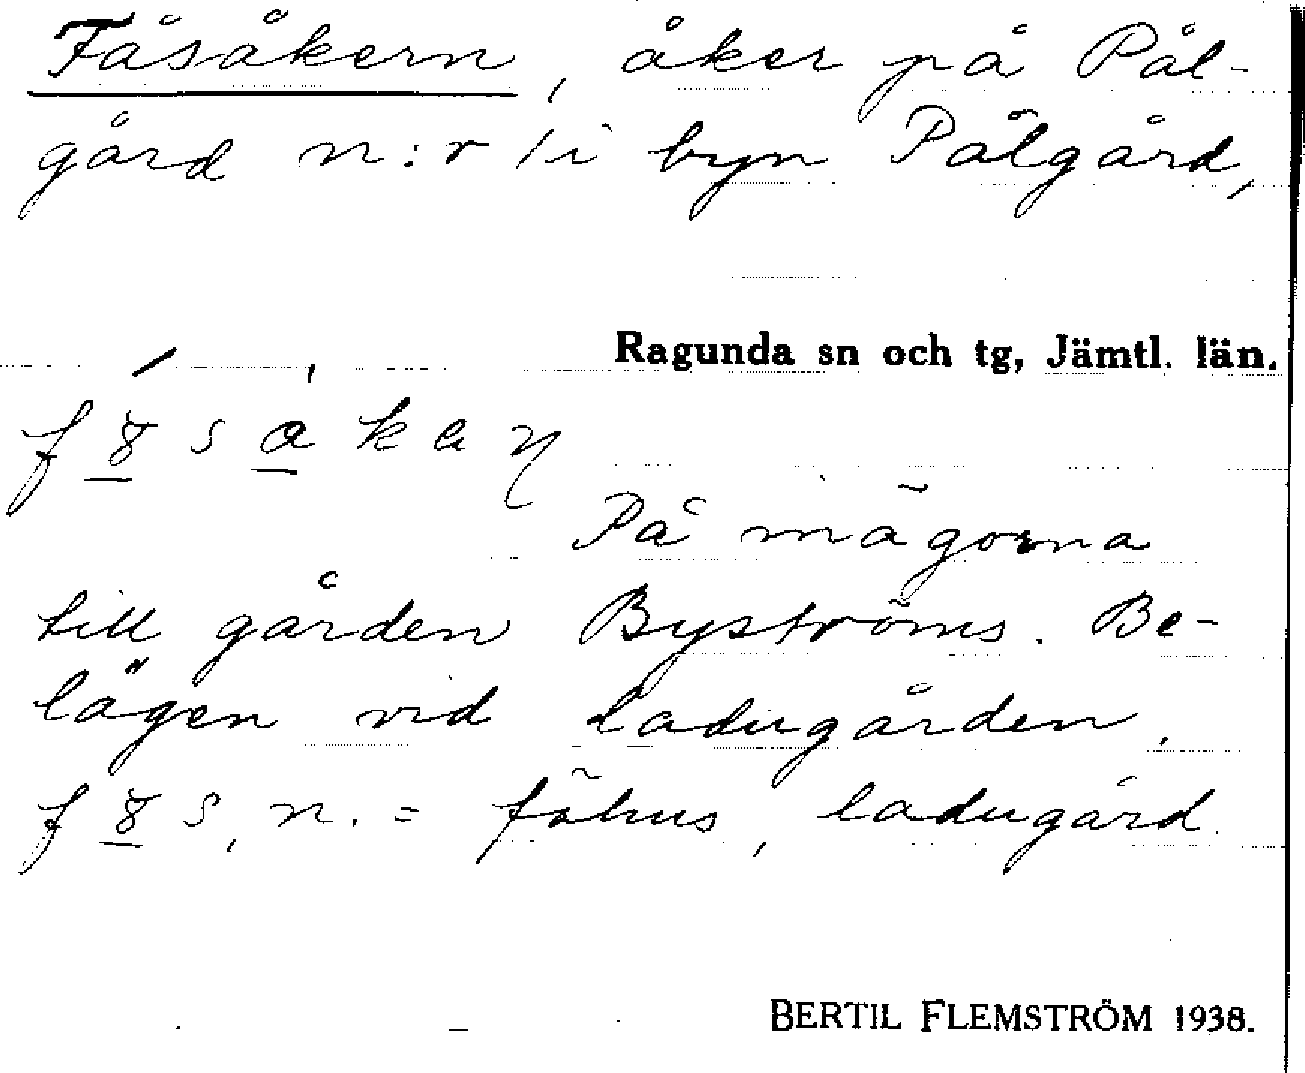 Fåsåkern, åker på Pål-
gård n:r 1 i byn Pålgård,
Ragunda sn och tg, Jämtl. län.
På mågorna
till gården Byströms. Be-
lägen vid ladugården.
n. = fähus, ladugård.
BERTIL FLEMSTRÖM 1938.